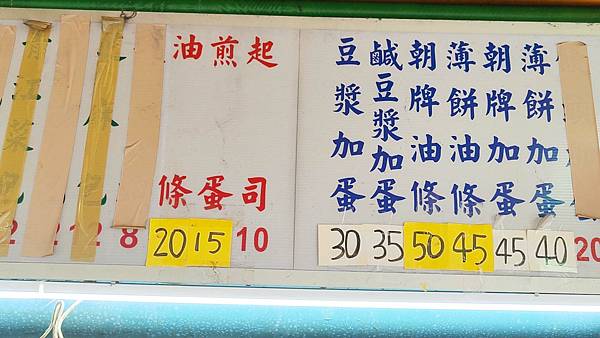 20
薄餅加蛋 40
朝牌加蛋 45
薄餅油條 45
朝牌油條 50
鹹豆漿加蛋 35
豆漿加蛋 30
起司 10
煎蛋 15
油條 20
8